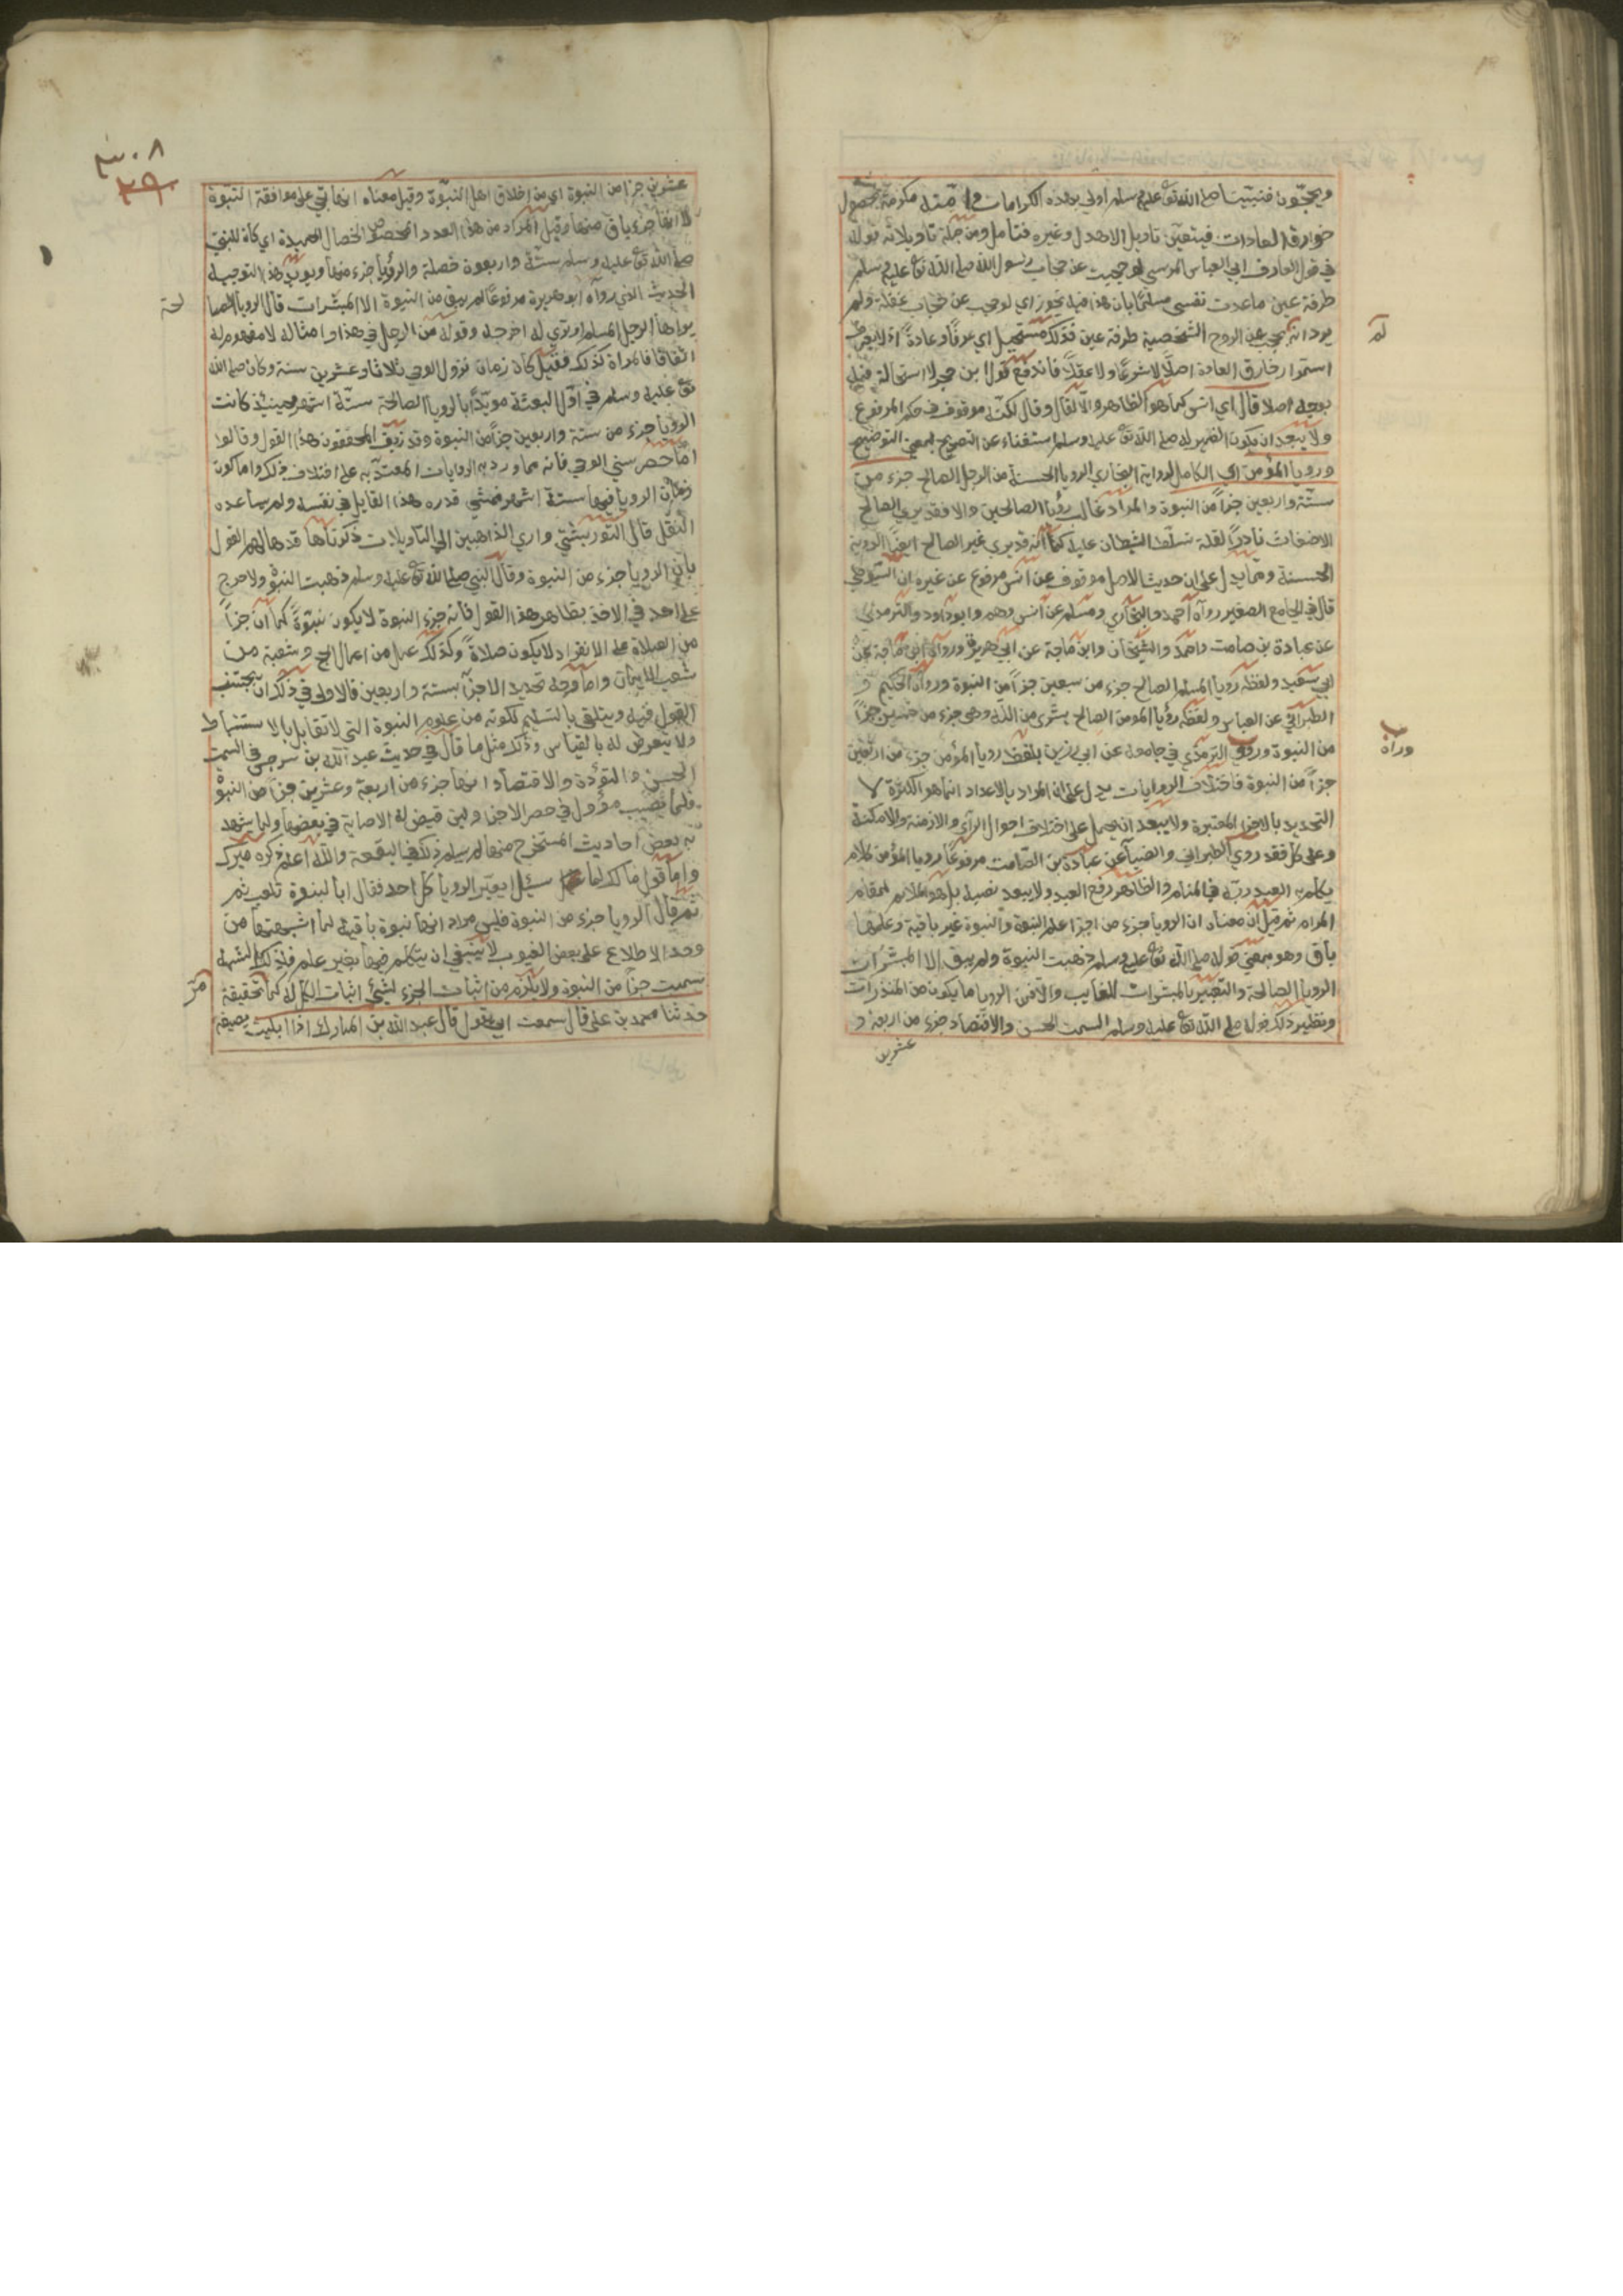 ويحجّون فنبيّنا صلى الله تع عليه وسلم اولى بهذه الكرامات و امّته مكرمة بحصول
خوارق العادات فيتعين تاويل الاهدل وغيره فتأمل ومن جملة تاويلاته قوله
في قول العارف ابي العباس المرسي لو حجبت عن جناب رسول الله صلى الله تع عليه وسلم
طرفة عين ما عددت نفسي مسلما بان هذا فيه تجوز اي لو حجب عن حجاب غفلة ولم
يرد انه لم يحجب عن الروح الشخصية طرفة عين فذلك مستحيل اي عرفا وعادة اذ لا يعرف
استمرار خارق العادة اصلا لا شرعا ولا عقلا فاندفع قول ابن حجر لا استحالة فيه
بوجه اصلا قال اي انس كما هو الظاهر والا لقال وقال لكنه موقوف في حكم المرفوع
ولا يبعد ان يكون الضمير له صلى الله تع عليه وسلم استغناء عن التصريح بمعنى التوضيح
ورويا المؤمن اي الكامل لرواية البخاري الرويا الحسنة من الرجل الصالح جزء من
ستة واربعين جزأ من النبوة والمراد غالب رؤيا الصالحين والا فقد يرى الصالح
الاضغاث نادرا لقلة تسلط الشيطان عليه كما انه قد يرى غير الصالح ايضا الروية
الحسنة ومما يدل على ان حديث الاصل موقوف عن انس مرفوع عن غيره ان السيوطي
قال في الجامع الصغير رواه احمد والبخاري ومسلم عن انس وهم وابو داود والترمذي
عن عبادة بن صامت واحمد والشيخان وابن ماجة عن ابي هريرة ورواه ابن ماجة عن
ابي سعيد ولفظه رويا المسلم الصالح جزء من سبعين جزأ من النبوة ورواه الحكيم و
الطبراني عن العباس ولفظه رؤيا المومن الصالح بشرى من الله وهي جزء من خمسين جزأ
من النبوة وروى الترمذي في جامعه عن ابي رزين بلفظ رويا المؤمن جزء من اربعين
جزأ من النبوة فاختلاف الروايات يدل على ان المراد بالاعداد انما هو الكثرة لا
التحديد بالاجزا المعتبرة ولا يبعد ان يحمل على اختلاف احوال الرآي والازمنة والامكنة
وعلى كل فقد روى الطبراني والضيا عن عبادة بن الصامت مرفوعا رويا المؤمن كلام
يكلم به العبد ربه في المنام والظاهر رفع العبد ولا يبعد نصبه بل هو الملائم لمقام
المرام ثم قيل ان معناه ان الرويا جزء من اجزا علم النبوة والنبوة غير باقية وعلمها
باق وهو بمعنى قوله صلى الله تع عليه وسلم ذهبت النبوة ولم يبق الا المبشرات
الرويا الصالحة والتعبير بالمبشرات للغالب والا فمن الرويا ما يكون من المنذرات
ونظير ذلك قوله صلى الله تع عليه وسلم السمت الحسن والاقتصاد جزء من اربعة و
عشرين
٣٠٨
٣٩
عشرين جزأ من النبوة اي من اخلاق اهل النبوة وقيل معناه انها تجي على موافقة النبوة
لا انها جزء باق منها وقيل المراد من هذا العدد المخصوص الخصال الحميدة اي كان للنبي
صلى الله تع عليه وسلم ستة واربعون خصلة والرؤيا جزء منها ويؤيد هذا التوجيه
الحديث الذي رواه ابو هريرة مرفوعا لم يبق من النبوة الا المبشرات قال الرويا الصا
لحة
يراها الرجل المسلم او ترى له اخرجه وقوله من الرجل في هذا وامثاله لا مفهوم له
اتفاقا فالمراة كذلك فقيل كان زمان نزول الوحي ثلاثا وعشرين سنة وكان صلى الله
تع عليه وسلم في اول البعثة مويدا بالرويا الصالحة ستة اشهر فحينئذ كانت
الرويا جزء من ستة واربعين جزأ من النبوة وقد زيف المحققون هذا القول وقالوا
اما حصر سني الوحي فانه مما ورد به الروايات المعتد به على اختلاف ذلك واما كون
زمان الرويا فيها ستة اشهر فشي قدره هذا القايل في نفسه ولم يساعده
النقل قال التوربشتي وارى الذاهبين الى التاويلات ذكرناها قد هالهم القول
بان الرويا جزء من النبوة وقال النبي صلى الله تع عليه وسلم ذهبت النبوة ولا حرج
على احد في الاخذ بظاهر هذا القول فانه جزء النبوة لا يكون نبوة كما ان جزأ
من الصلاة على الانفراد لا يكون صلاة وكذلك عمل من اعمال الحج وشعبة من
شعب الايمان واما وجه تحديد الاجزا بستة واربعين فالاولى في ذلك ان يجتنب
القول فيه ويتلقى بالتسليم لكونه من علوم النبوة التي لا تقابل بالاستنباط
ولا يتعرض له بالقياس وذلك مثل ما قال في حديث عبد الله بن سرجس في السمت
الحسن والتؤدة والاقتصاد انها جزء من اربعة وعشرين جزأ من النبوة
فلما يصيب مؤول في حصر الاجزا ولين قيض له الاصابة في بعضها ولما شهد
به بعض احاديث المستخرج منها لم يسلم ذلك في البقية والله اعلم ذكره ميرك
واما قول مالك لما سئل ايعبر الرويا كل احد فقال ابالنبوة تلعب ثم
ثم قال الرويا جزء من النبوة فليس مراده انها نبوة باقية لما اشبهتها من
وجد الاطلاع على بعض الغيوب لا ينبغي ان يتكلم فيها بغير علم فلذلك الشبه
سميت جزأ من النبوة ولا يلزم من اثبات الجزء لشيء اثبات الكل له كما تحقيقه
مر
حدثنا محمد بن علي قال سمعت ابي يقول قال عبد الله بن المبارك اذا ابليت بصيغة